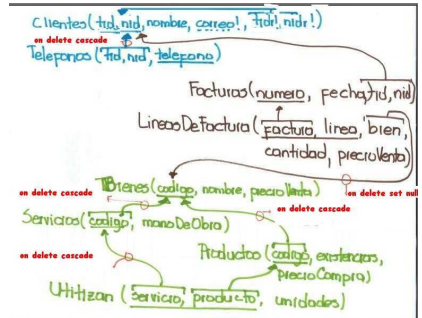 Clientes(tid,nid,nombre,correo!, tidr!,nidr!)
on delete cascade
Telefonos(tid,nid,telefono)
Facturas(numero, fecha,tid,nid)
LineasDeFactura(factura, linea, bien,
cantidad, precioVenta)
Bienes(codigo, nombre, precioVenta)
on delete cascade
on delete set null
Servicios(codigo, manoDeObra)
on delete cascade
Productos(codigo, existencias,
precioCompra)
on delete cascade
Utilizan(servicio, producto, unidades)